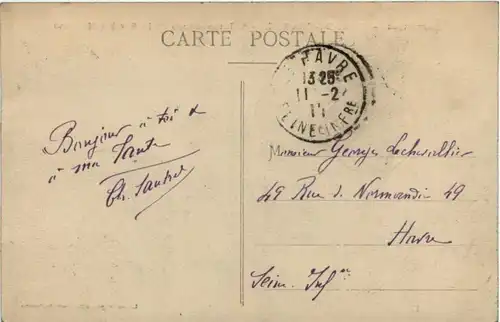 CARTE POSTALE
HAVRE
13 25
11 -2
11
SEINE INFRE
Bonjour à toi &
à ma tante
Monsieur Georges Lechevallier
49 Rue de Normandie 49
Havre
Seine Infre